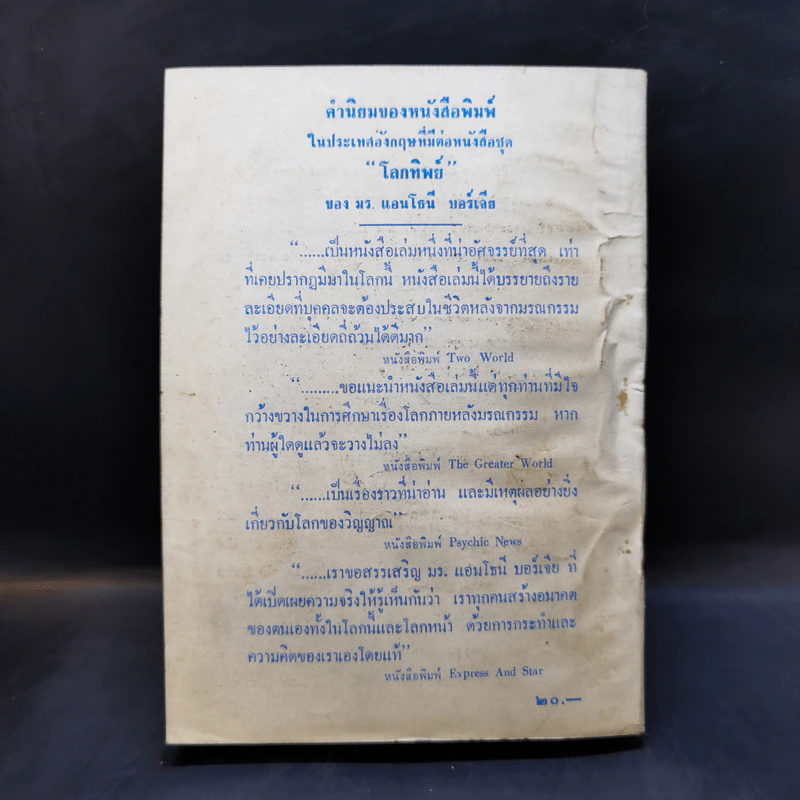 คำนิยมของหนังสือพิมพ์
ในประเทศอังกฤษที่มีต่อหนังสือชุด
“โลกทิพย์”
ของ มร. แอนโธนี บอร์เจีย
“......เป็นหนังสือเล่มหนึ่งที่น่าอัศจรรย์ที่สุด เท่า
ที่เคยปรากฏมีมาในโลกนี้ หนังสือเล่มนี้ได้บรรยายถึงราย
ละเอียดที่บุคคลจะต้องประสบในชีวิตหลังจากมรณกรรม
ไว้อย่างละเอียดถี่ถ้วนได้ดีมาก”
หนังสือพิมพ์ Two World
“.........ขอแนะนำหนังสือเล่มนี้แด่ทุกท่านที่มีใจ
กว้างขวางในการศึกษาเรื่องโลกภายหลังมรณกรรม หาก
ท่านผู้ใดดูแล้วจะวางไม่ลง”
หนังสือพิมพ์ The Greater World
“......เป็นเรื่องราวที่น่าอ่าน และมีเหตุผลอย่างยิ่ง
เกี่ยวกับโลกของวิญญาณ”
หนังสือพิมพ์ Psychic News
“......เราขอสรรเสริญ มร. แอนโธนี บอร์เจีย ที่
ได้เปิดเผยความจริงให้รู้เห็นกันว่า เราทุกคนสร้างอนาคต
ของตนเองทั้งในโลกนี้และโลกหน้า ด้วยการกระทำและ
ความคิดของเราเองโดยแท้”
หนังสือพิมพ์ Express And Star
๒๐.—